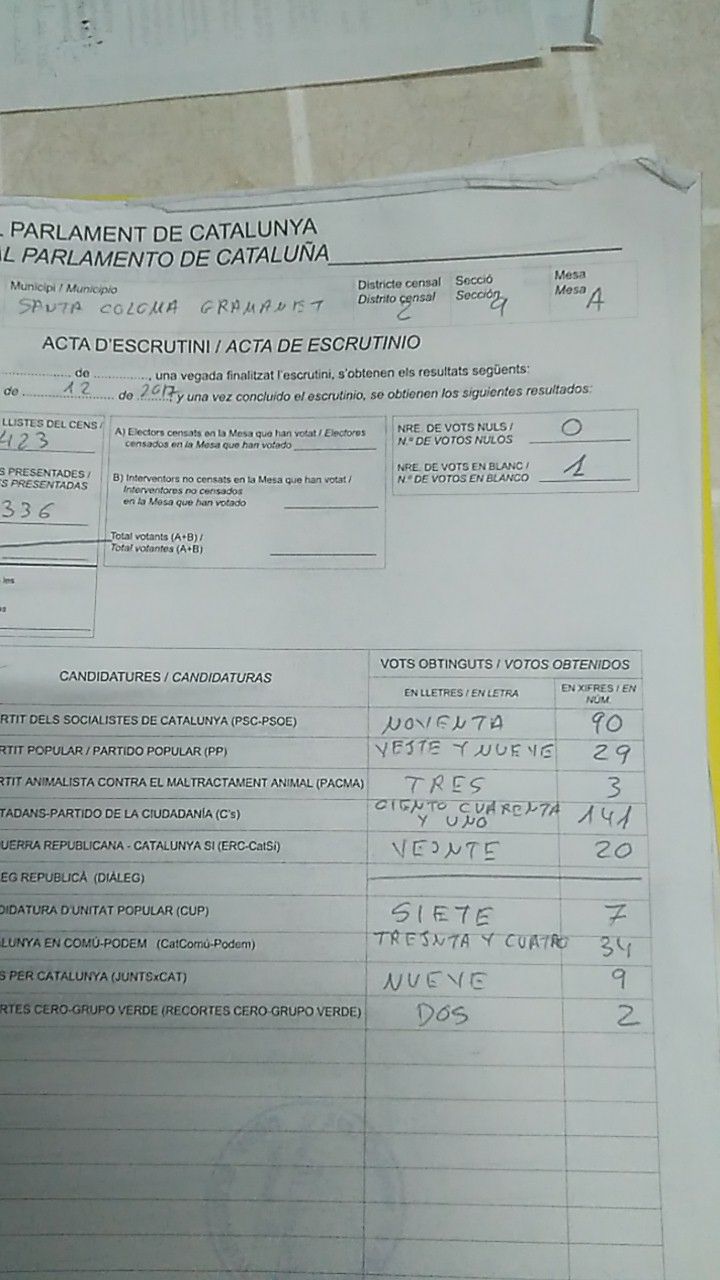 L PARLAMENT DE CATALUNYA
AL PARLAMENTO DE CATALUÑA
Municipi / Municipio
SANTA COLOMA GRAMANET
Districte censal
Distrito censal
2
Secció
Sección
9
Mesa
Mesa A
ACTA D'ESCRUTINI / ACTA DE ESCRUTINIO
de , una vegada finalitzat l'escrutini, s'obtenen els resultats següents:
de 12 de 2017 y una vez concluido el escrutinio, se obtienen los siguientes resultados:
LLISTES DEL CENS /
423
S PRESENTADES /
S PRESENTADAS
336
les
A) Electors censats en la Mesa que han votat / Electores
censados en la Mesa que han votado
B) Interventors no censats en la Mesa que han votat /
Interventores no censados
en la Mesa que han votado
Total votants (A+B) /
Total votantes (A+B)
NRE. DE VOTS NULS /
N.º DE VOTOS NULOS 0
NRE. DE VOTS EN BLANC /
N.º DE VOTOS EN BLANCO 1
CANDIDATURES / CANDIDATURAS
VOTS OBTINGUTS / VOTOS OBTENIDOS
EN LLETRES / EN LETRA
EN XIFRES / EN
NÚM.
RTIT DELS SOCIALISTES DE CATALUNYA (PSC-PSOE) NOVENTA 90
RTIT POPULAR / PARTIDO POPULAR (PP) VEITE Y NUEVE 29
RTIT ANIMALISTA CONTRA EL MALTRACTAMENT ANIMAL (PACMA) TRES 3
TADANS-PARTIDO DE LA CIUDADANÍA (C's) CIENTO CUARENTA
Y UNO 141
UERRA REPUBLICANA - CATALUNYA SI (ERC-CatSi) VEINTE 20
EG REPUBLICÀ (DIÀLEG)
DIDATURA D'UNITAT POPULAR (CUP) SIETE 7
LUNYA EN COMÚ-PODEM (CatComú-Podem) TREINTA Y CUATRO 34
S PER CATALUNYA (JUNTSxCAT) NUEVE 9
RTES CERO-GRUPO VERDE (RECORTES CERO-GRUPO VERDE) DOS 2